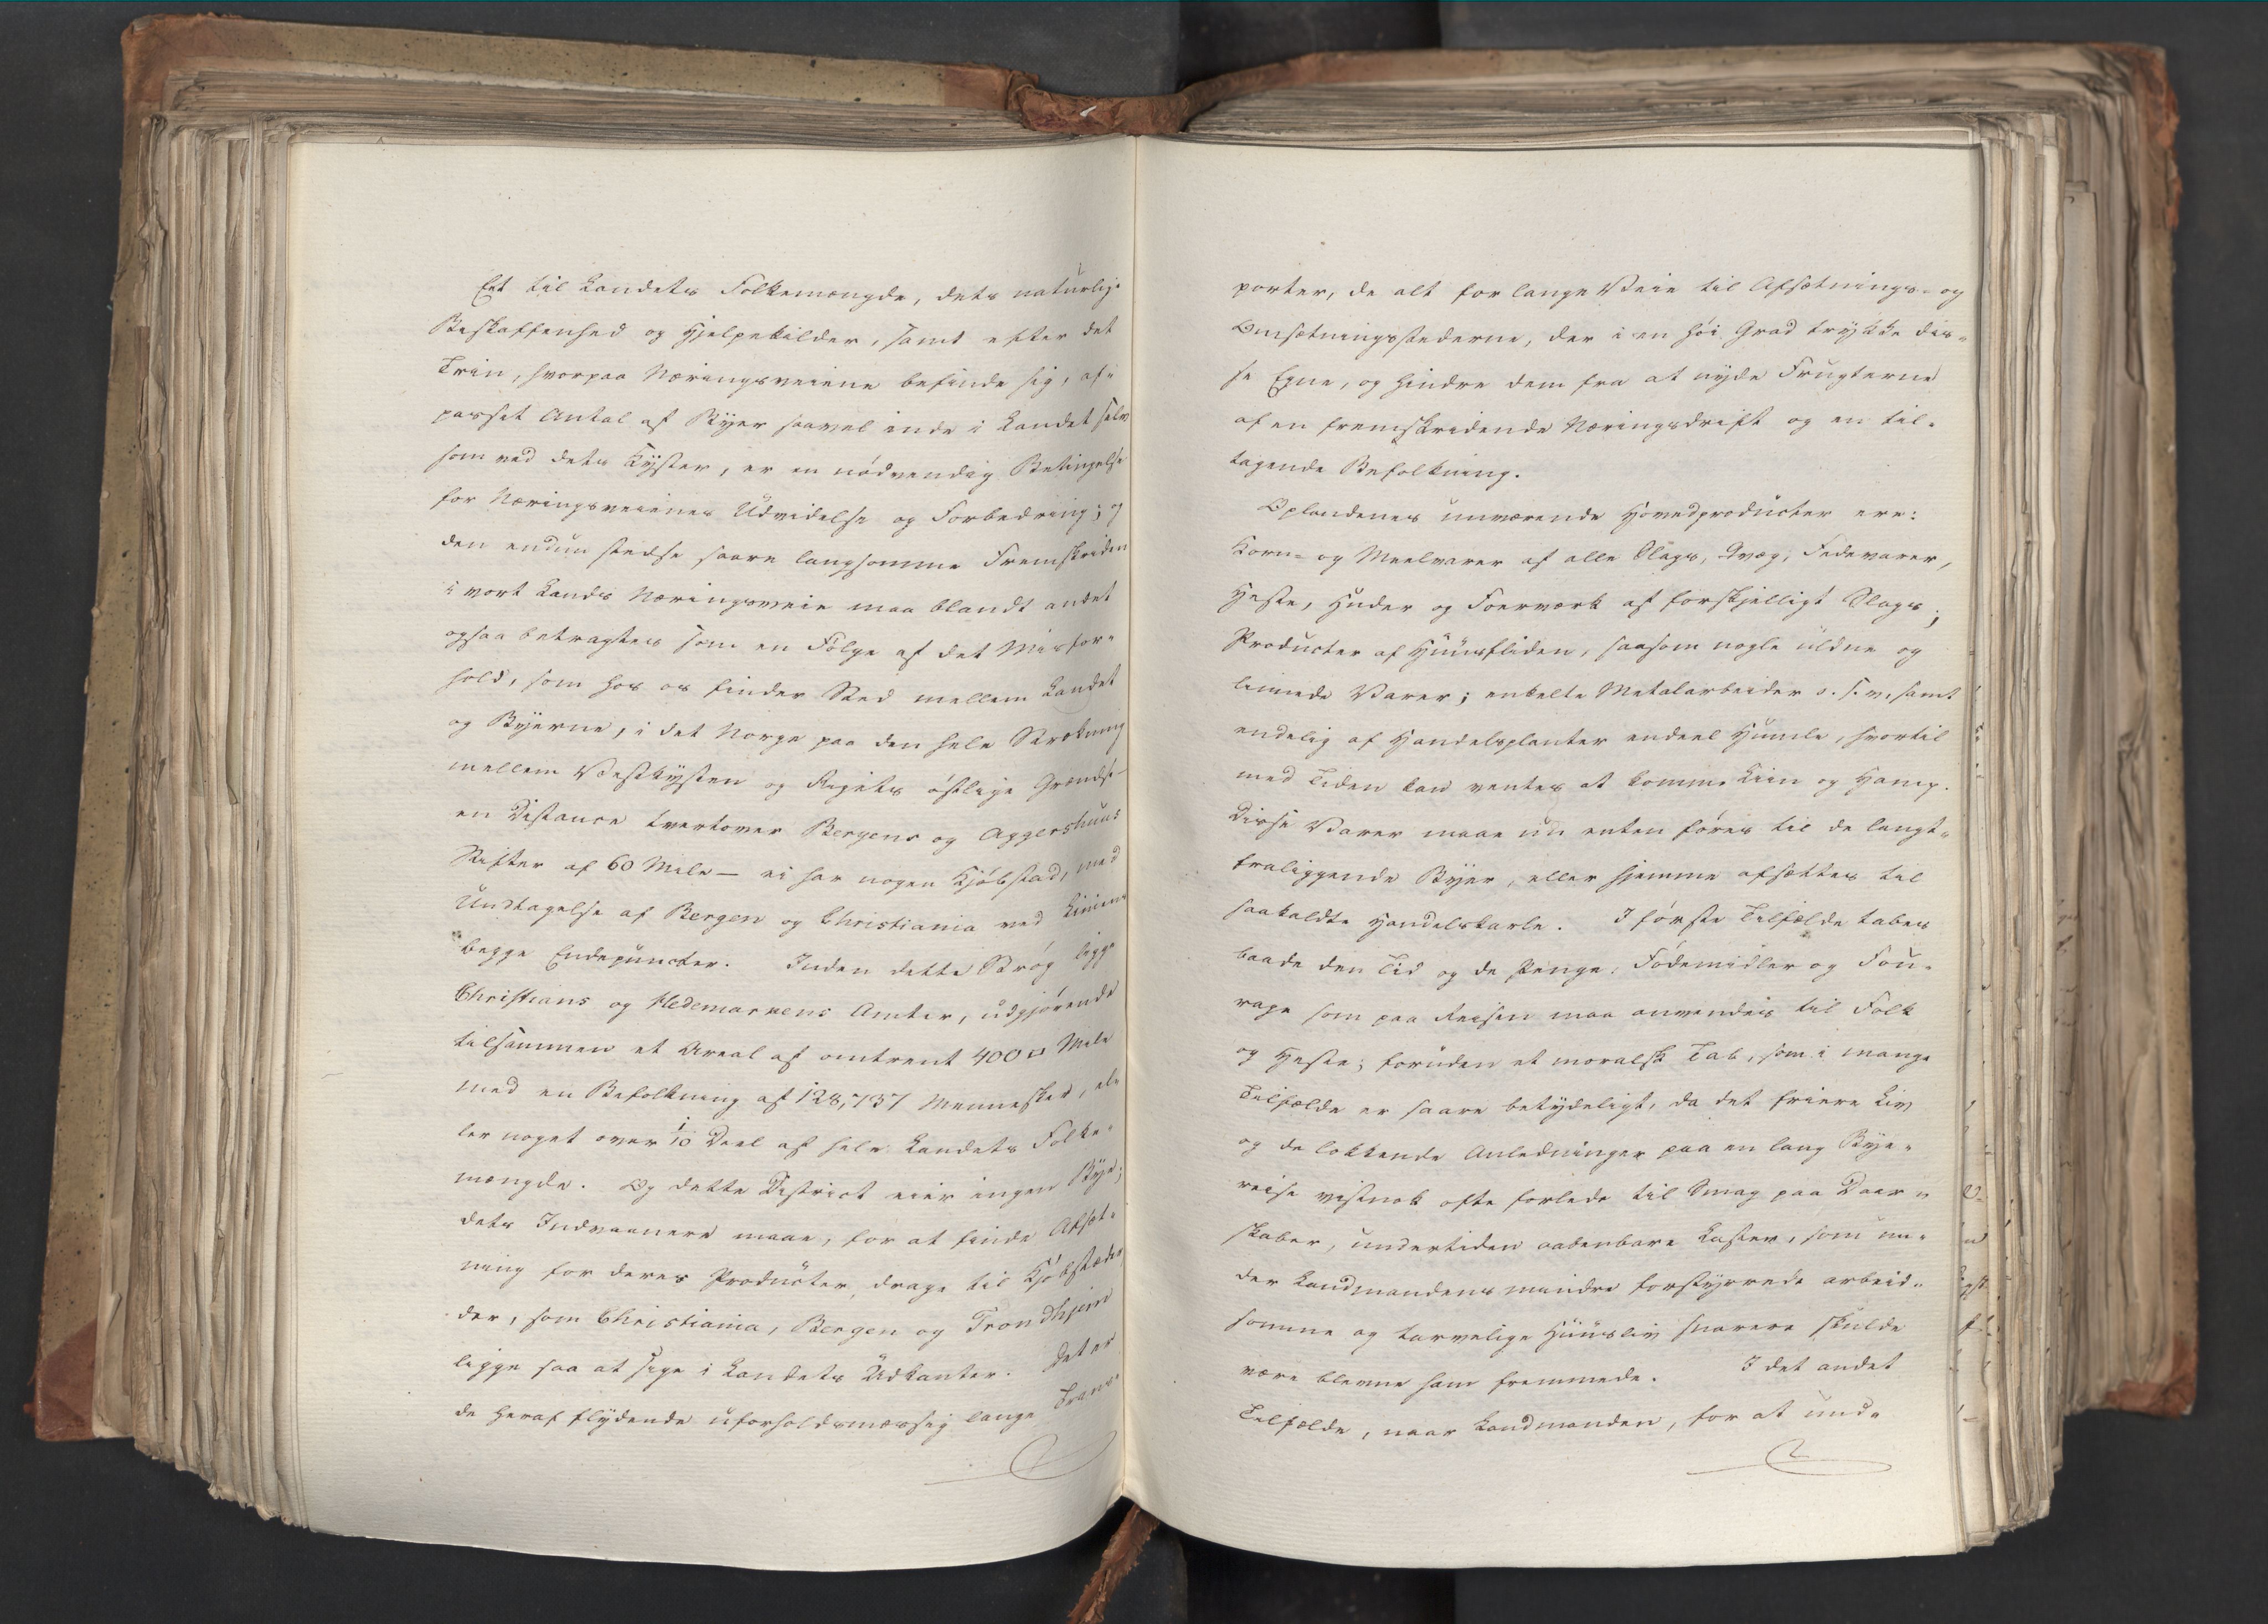 Et til Landets Folkemængde, dets naturlige
Beskaffenhed og Hjelpekilder, samt efter det
Trin, hvorpaa Næringsveiene befinde sig, af-
passet Antal af Byer saavel inde i Landet selv
som ved dets Kyster, er en nødvendig Betingelse
for Næringsveienes Udvidelse og Forbedring; og
den endnu stedse saare langsomme Fremskriden
i vort Lands Næringsveie maa blandt andet
ogsaa betragtes som en Følge af det Misfor-
hold, som hos os finder Sted mellem Landet
og Byerne, i det Norge paa den hele Strækning
mellem Vestkysten og Rigets østlige Grændse –
en Distance tvertover Bergens og Aggershuus
Stifter af 60 Mile – ei har nogen Kjøbstad, med
Undtagelse af Bergen og Christiania ved Liniens
begge Endepuncter. Inden dette Strøg ligge
Christians og Hedemarkens Amter, udgjørende
tilsammen et Areal af omtrent 400 □ Mile
med en Befolkning af 128,737 Mennesker, el-
ler noget over 1/10 Deel af hele Landets Folke-
mængde. Og dette District eier ingen Bye;
dets Indvaanere maae, for at finde Afsæt-
ning for deres Producter, drage til Kjøbstæder,
der, som Christiania, Bergen og Trondhjem
ligge saa at sige i Landets Udkanter. Det er
de heraf flydende uforholdsmæssig lange Trans-
porter, de alt for lange Veie til Afsætnings- og
Omsætningsstederne, der i en høi Grad trykke dis-
se Egne, og hindre dem fra at nyde Frugterne
af en fremskridende Næringsdrift og en til-
tagende Befolkning.
Oplandenes nuværende Hovedproducter ere:
Korn- og Meelvarer af alle Slags, Qvæg, Fedevarer,
Heste, Huder og Foerværk af forskjelligt Slags;
Producter af Huusfliden, saasom nogle uldne og
linnede Varer; enkelte Metalarbeider o. s. v. samt
endelig af Handelsplanter endeel Humle, hvortil
med Tiden kan ventes at komme Liin og Hamp.
Disse Varer maae nu enten føres til de langt-
fraliggende Byer, eller hjemme afsættes til
saakaldte Handelskarle. I første Tilfælde tabes
baade den Tid og de Penge, Fødemidler og Fou-
rage som paa Reisen maa anvendes til Folk
og Heste; foruden et moralsk Tab, som i mange
Tilfælde er saare betydeligt, da det friere Liv
og de lokkende Anledninger paa en lang Bye-
reise vistnok ofte forlede til Smag paa Daar-
skaber, undertiden aabenbare Laster, som un-
der Landmandens mindre forstyrrede arbeid-
somme og tarvelige Huusliv snarere skulde
være blevne ham fremmede. I det andet
Tilfælde, naar Landmanden, for at und-